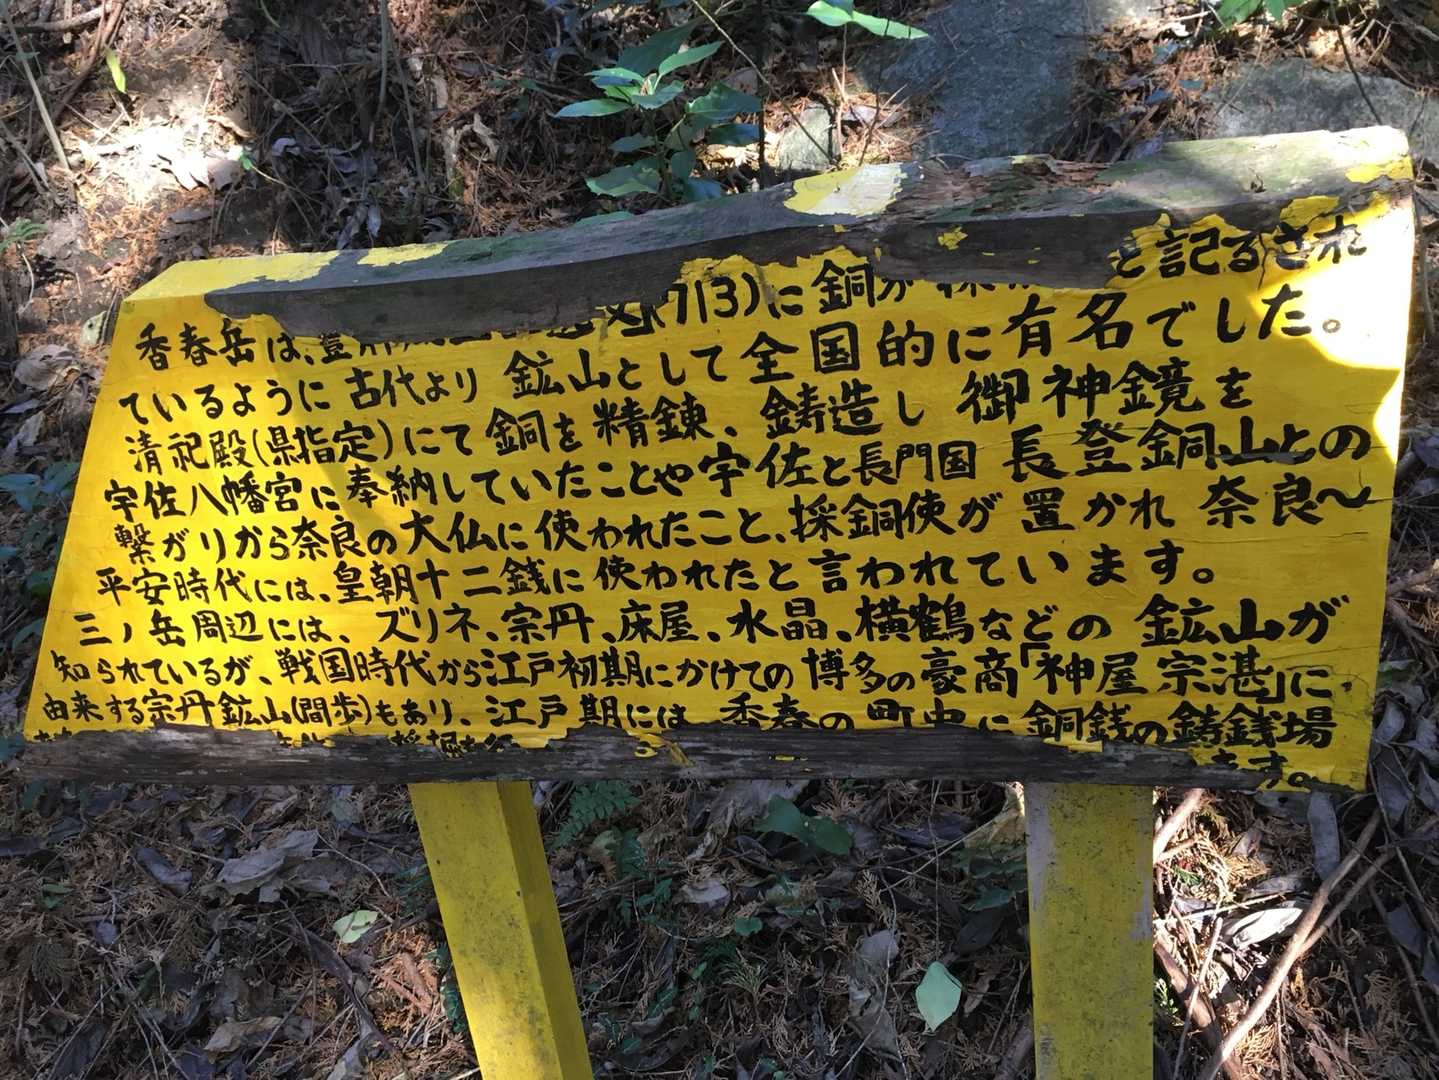 香春岳は、豊前 (713)に銅が と記るされ
ているように古代より鉱山として全国的に有名でした。
清祀殿(県指定)にて銅を精錬、鋳造し御神鏡を
宇佐八幡宮に奉納していたことや宇佐と長門国長登銅山との
繋がりから奈良の大仏に使われたこと、採銅使が置かれ奈良〜
平安時代には、皇朝十二銭に使われたと言われています。
三ノ岳周辺には、ズリネ、宗丹、床屋、水晶、横鶴などの鉱山が
知られているが、戦国時代から江戸初期にかけての博多の豪商「神屋宗湛」に
由来する宗丹鉱山(間歩)もあり、江戸期には香春の町中に銅銭の鋳銭場
ます。